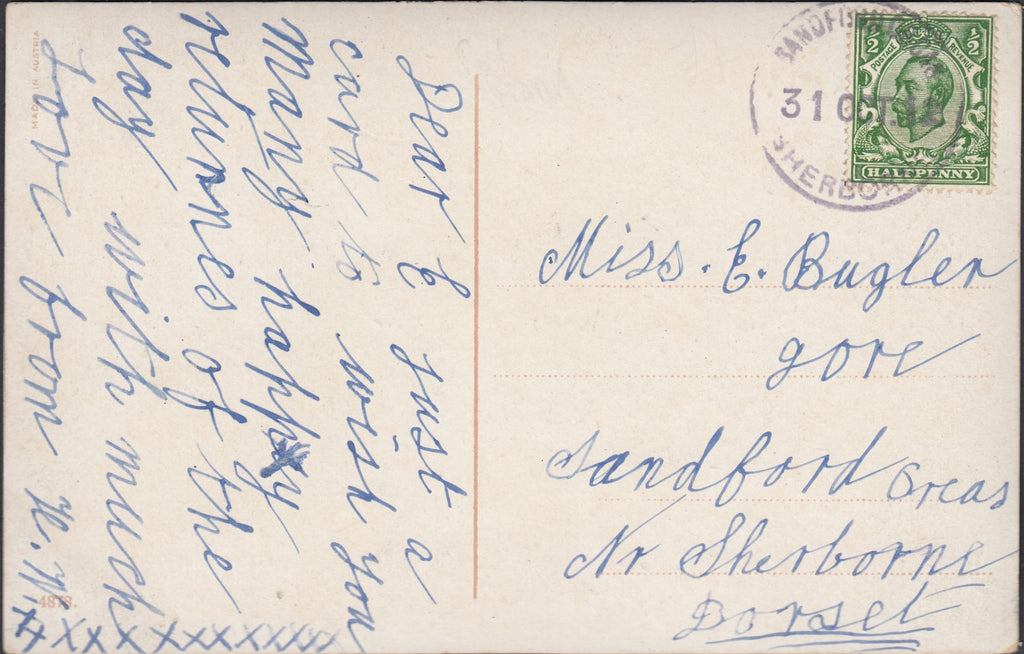 MADE IN AUSTRIA
Dear E just a
card to wish you
Many happy
returnes of the
day with much
Love from
xxxxxxxxxxxx
4878.
SHERBO
31 OCT
½ ½
POSTAGE REVENUE
HALFPENNY
Miss. E. Bugler
gore
Sandford Orcas
Nr Sherborne
Dorset